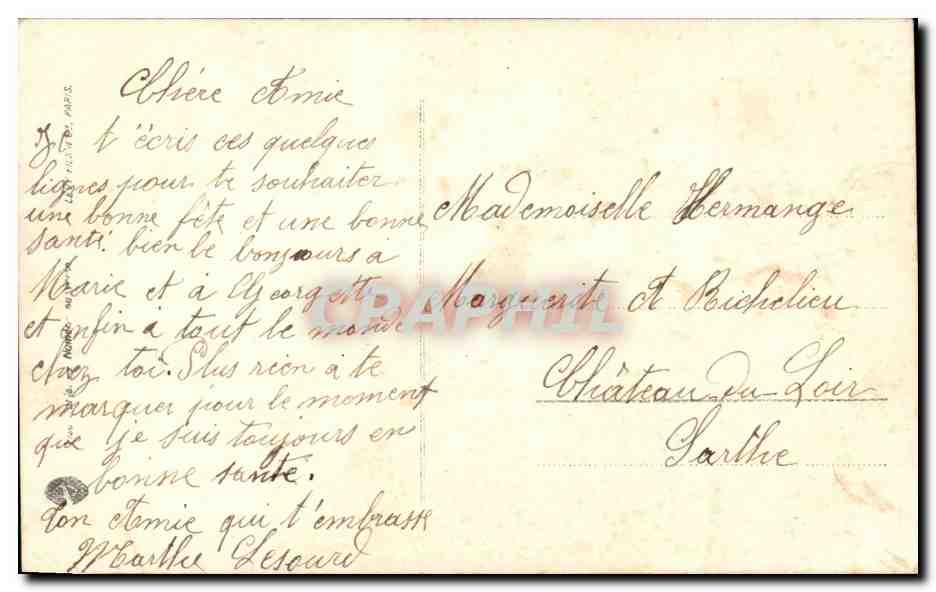 Chère Amie
Je t'écris ces quelques
lignes pour te souhaiter
une bonne fête et une bonne
santé. bien le bonjours à
Marie et à Georgette
et enfin à tout le monde
chez toi. Plus rien à te
marquer pour le moment
que je suis toujours en
bonne santé.
Ton Amie qui t'embrasse
Marthe Lesourd
Mademoiselle Hermange
Marguerite A Richelieu
Château du Loir
Sarthe
CPAPHIL
PARIS.